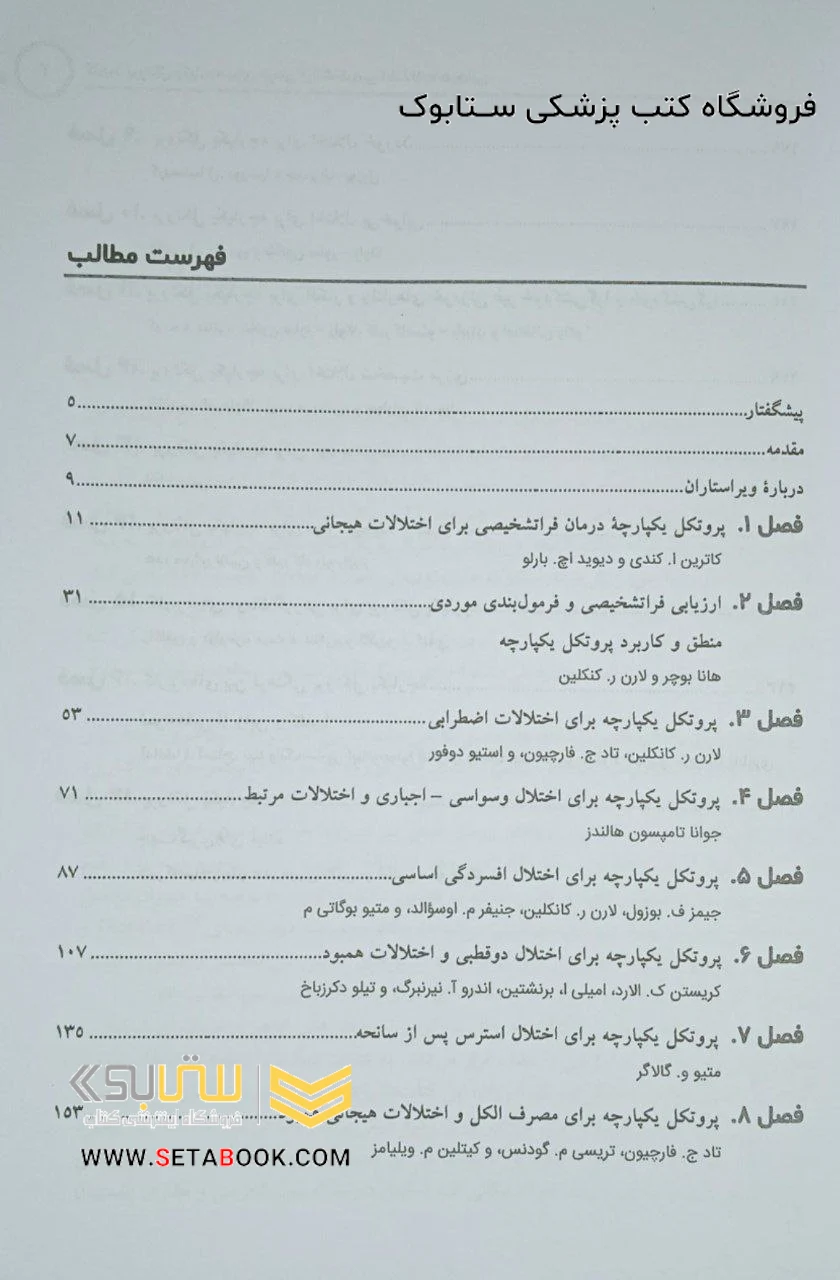 فروشگاه کتب پزشکی ستابوک
فهرست مطالب
پیشگفتار ۵
مقدمه ۷
دربارهٔ ویراستاران ۹
فصل ۱. پروتکل یکپارچهٔ درمان فراتشخیصی برای اختلالات هیجانی ۱۱
کاترین ا. کندی و دیوید اچ. بارلو
فصل ۲. ارزیابی فراتشخیصی و فرمول‌بندی موردی ۳۱
منطق و کاربرد پروتکل یکپارچه
هانا بوچر و لارن ر. کنکلین
فصل ۳. پروتکل یکپارچه برای اختلالات اضطرابی ۵۳
لارن ر. کانکلین، تاد ج. فارچیون، و استیو دوفور
فصل ۴. پروتکل یکپارچه برای اختلال وسواسی – اجباری و اختلالات مرتبط ۷۱
جوانا تامپسون هالندز
فصل ۵. پروتکل یکپارچه برای اختلال افسردگی اساسی ۸۷
جیمز ف. بوزول، لارن ر. کانکلین، جنیفر م. اوسؤالد، و متیو بوگاتی م
فصل ۶. پروتکل یکپارچه برای اختلال دوقطبی و اختلالات همبود ۱۰۷
کریستن ک. الارد، امیلی ا، برنشتین، اندرو آ. نیرنبرگ، و تیلو دکرزباخ
فصل ۷. پروتکل یکپارچه برای اختلال استرس پس از سانحه ۱۳۵
متیو و. گالاگر
فصل ۸. پروتکل یکپارچه برای مصرف الکل و اختلالات هیجانی ۱۵۳
تاد ج. فارچیون، تریسی م. گودنس، و کیتلین م. ویلیامز
ستابوک
فروشگاه اینترنتی کتاب
WWW.SETABOOK.COM